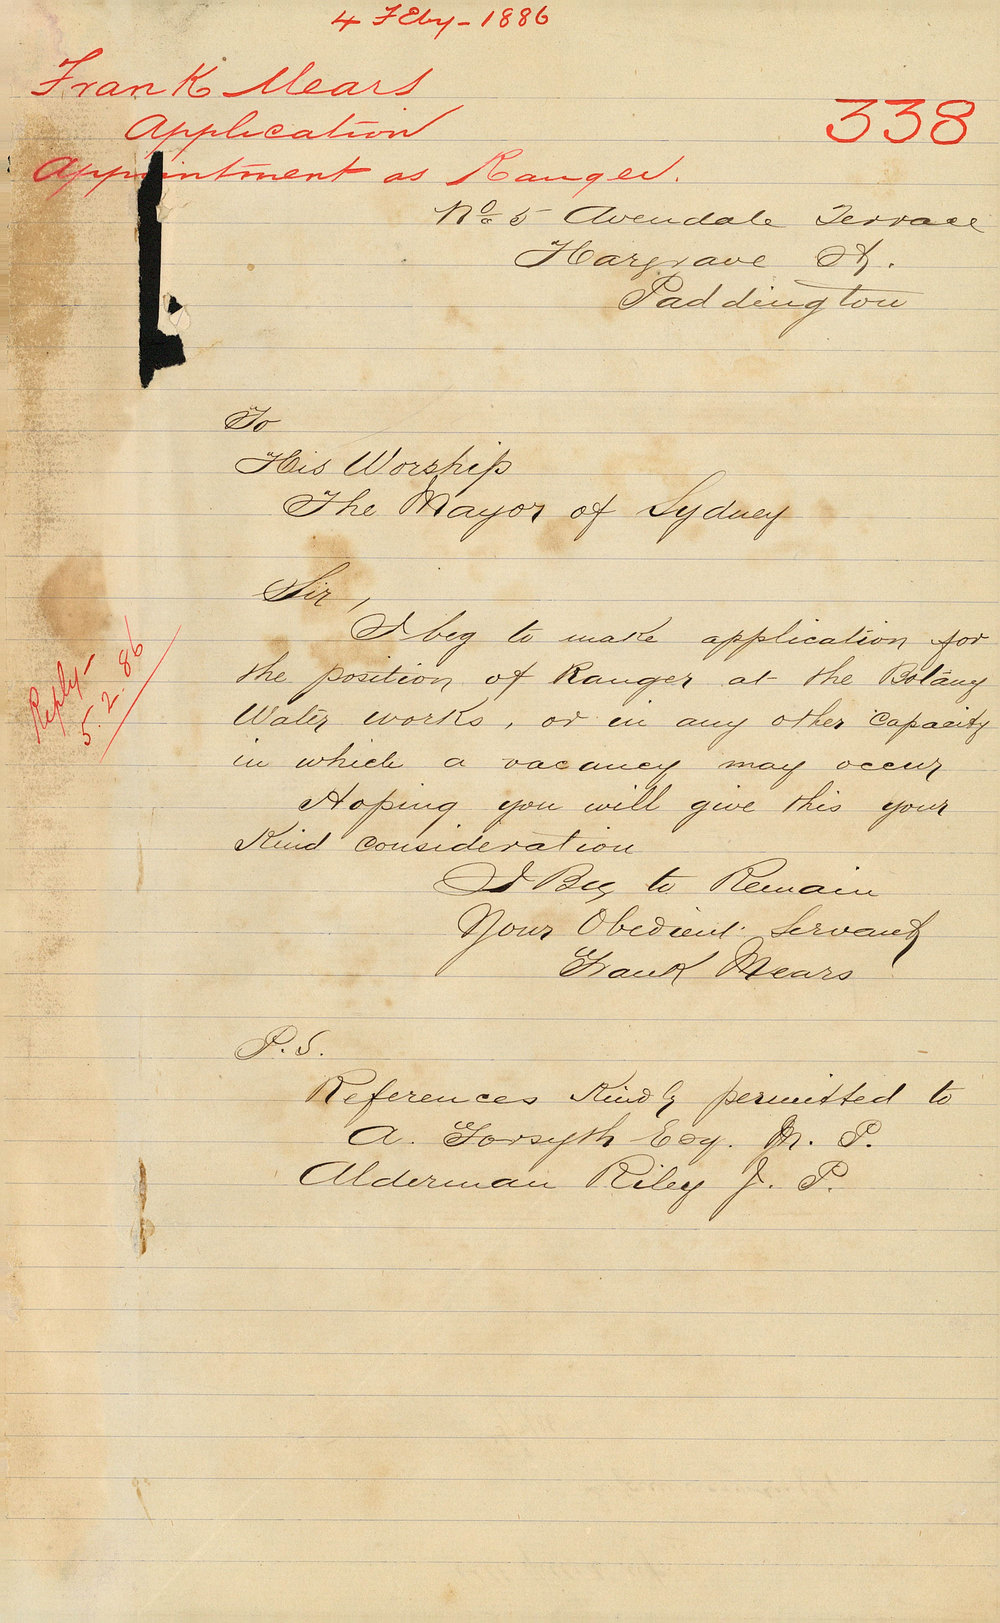 4 Feby - 1886
Frank Mears
Application
Appointment as Ranger.
338
No 5 Avendale Terrace
Hargrave St.
Paddington
To
His Worship
The Mayor of Sydney
Sir,
I beg to make application for
the position of Ranger at the Botany
Water works, or in any other capacity
in which a vacancy may occur
Hoping you will give this your
Kind consideration
I Beg to Remain
Your Obedient Servant
Frank Mears
Reply -
5.2.86
P.S.
References Kindly permitted to
A. Forsyth Esq. M. P.
Alderman Riley J. P.